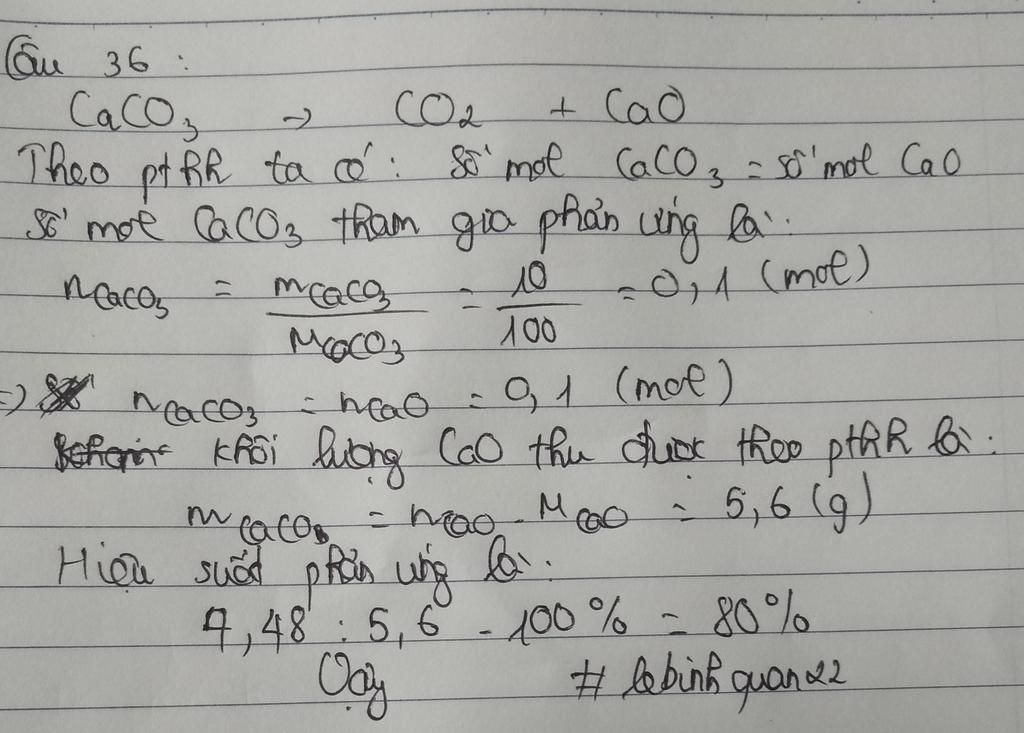 Câu 36 :
CaCO3 → CO2 + CaO
Theo ptHH ta có : Số mol CaCO3 = số mol CaO
Số mol CaCO3 tham gia phản ứng là :
nCaCO3 = mCaCO3 / MCaCO3 = 10 / 100 = 0,1 (mol)
=) nCaCO3 = nCaO = 0,1 (mol)
Khối lượng CaO thu được theo ptHH là :
mCaCO3 = nCaO . MCaO = 5,6 (g)
Hiệu suất phản ứng là :
4,48 : 5,6 . 100% = 80%
Vậy # lebinhquan22